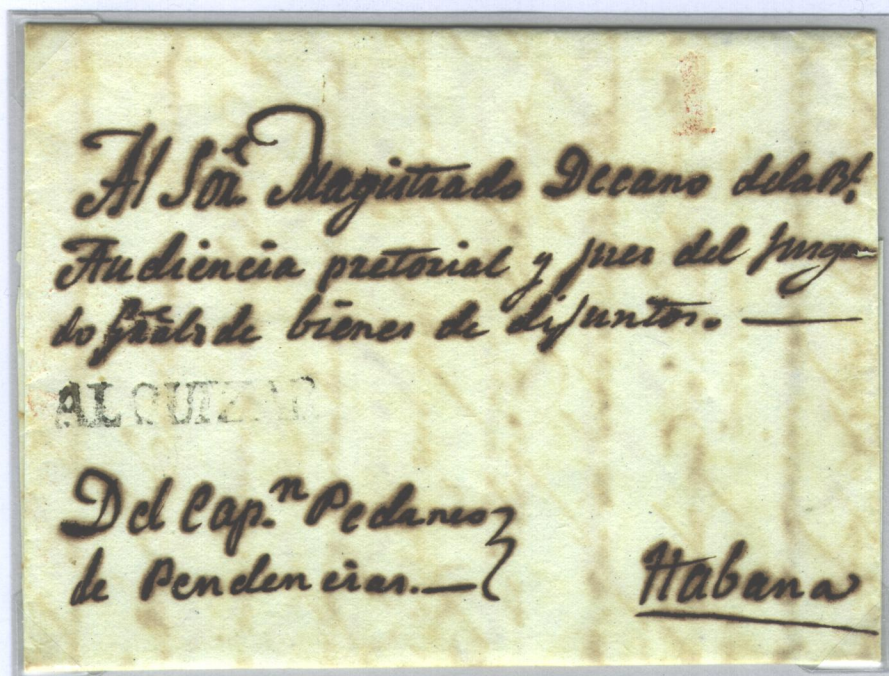 1
Al Sor. Magistrado Decano dela Rl.
Audiencia pretorial y jues del Jusga
do Gral de bienes de difuntos. —
ALQUIZAR
Del Cap.n Pedaneo
de Pendencias. —
Habana